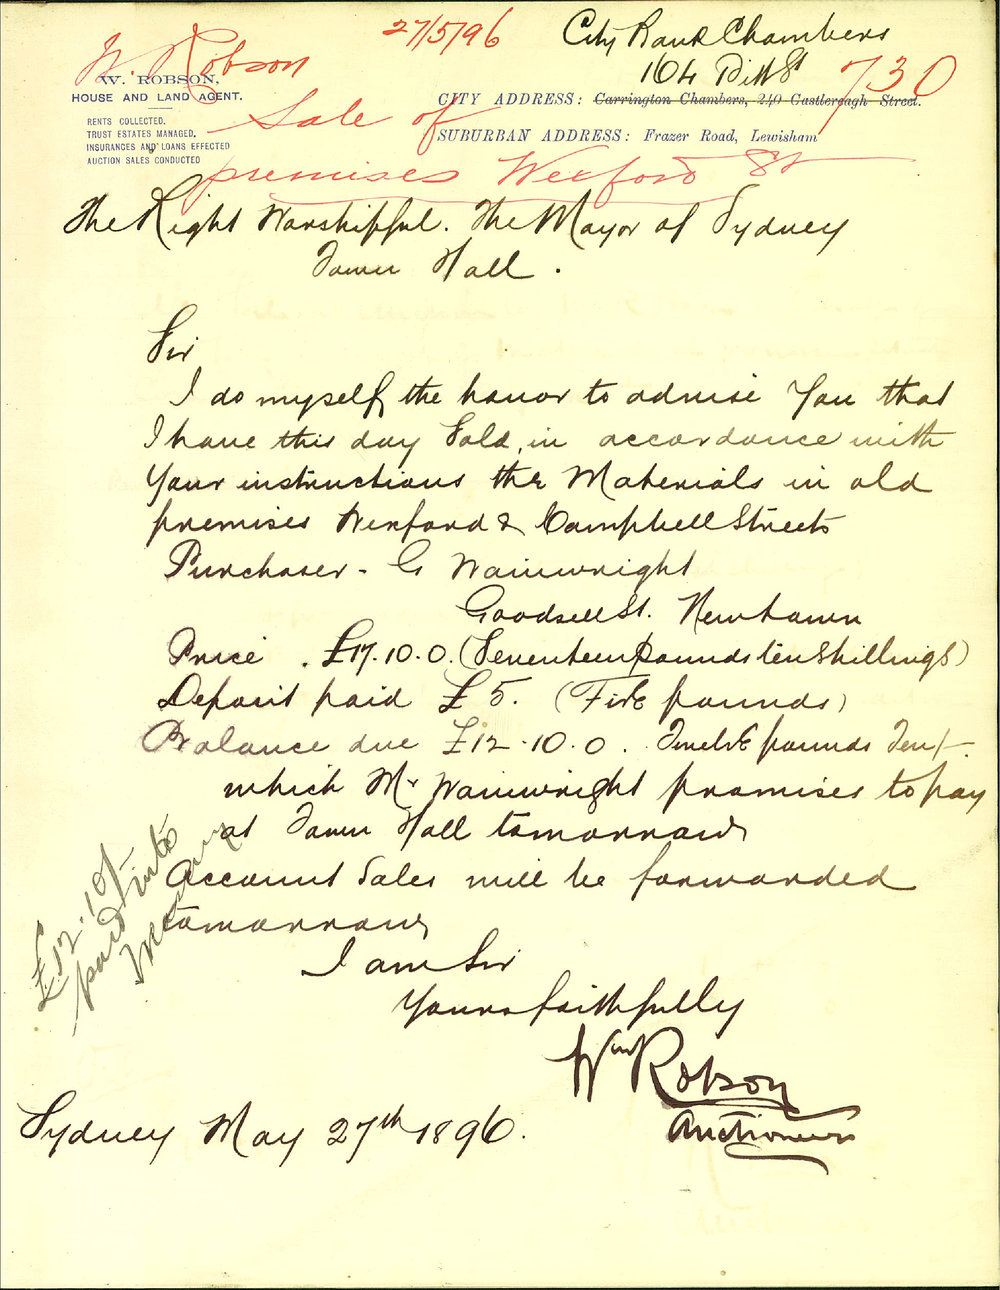 27/5/96
W. Robson
730
Sale of
premises Wexford St
City Bank Chambers
164 Pitt St
W. ROBSON,
HOUSE AND LAND AGENT.
RENTS COLLECTED.
TRUST ESTATES MANAGED.
INSURANCES AND LOANS EFFECTED
AUCTION SALES CONDUCTED
CITY ADDRESS: Carrington Chambers, 240 Castlereagh Street.
SUBURBAN ADDRESS: Frazer Road, Lewisham
The Right Worshipful. The Mayor of Sydney
Town Hall.
Sir
I do myself the honor to advise You that
I have this day Sold, in accordance with
Your instructions the Materials in old
premises Wexford & Campbell Streets
Purchaser - G Wainwright
Goodsell St. Newtown
Price . £17.10.0. (Seventeen pounds ten Shillings)
Deposit paid £5. (FivE pounds)
Balance due £12.10.0. TwelvE pounds Ten/-.
which Mr Wainwright promises to pay
at Town Hall tomorrow
Account Sales will be forwarded
tomorrow
£12.10/-
paid into
I am Sir
Yours faithfully
Wm Robson
Auctioneer
Sydney May 27th 1896.